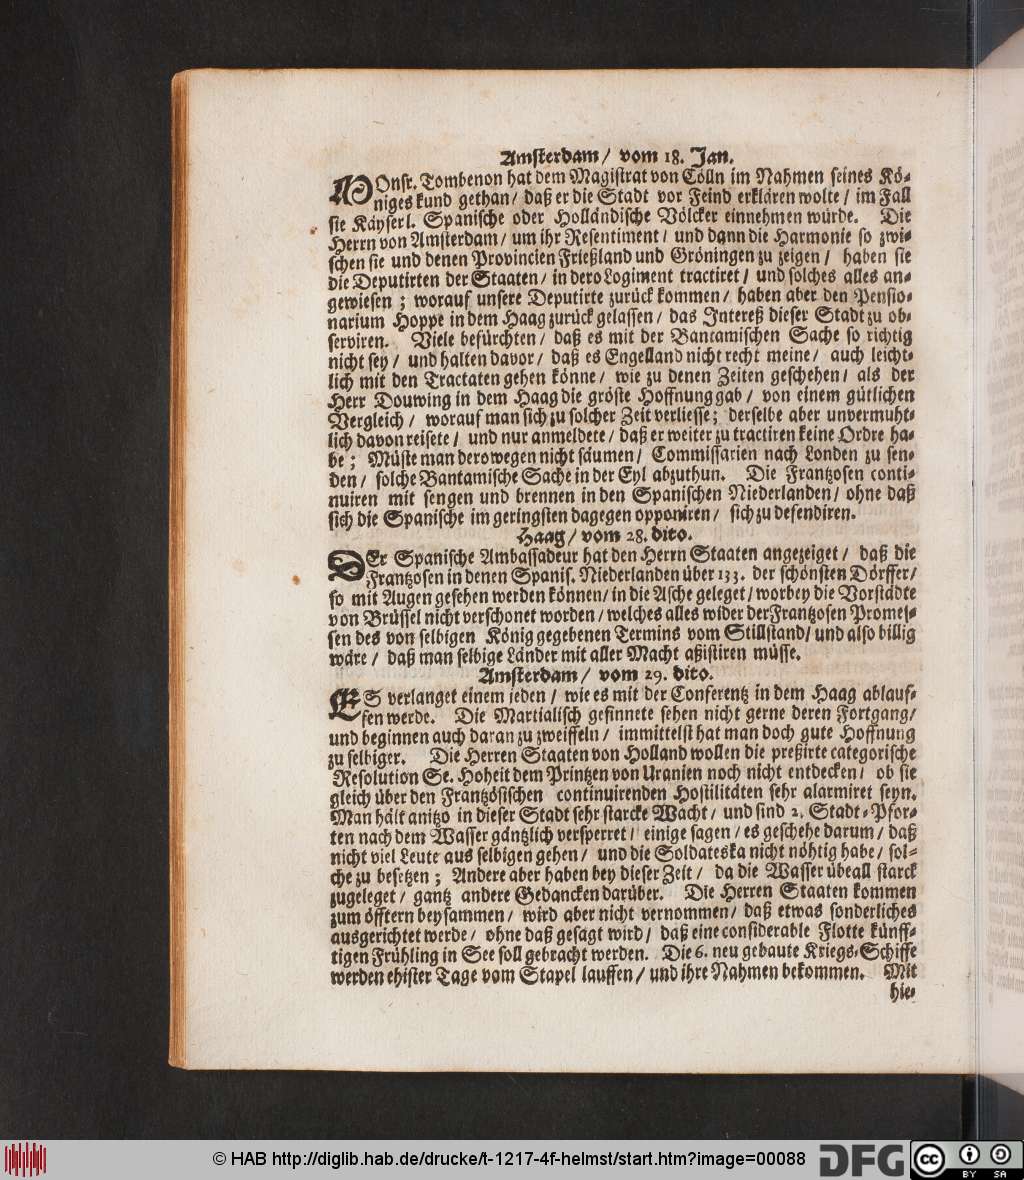 Amsterdam / vom 18. Jan.
MOnsr. Tombenon hat dem Magistrat von Cölln im Nahmen seines Kö-
niges kund gethan / daß er die Stadt vor Feind erklären wolte / im Fall
sie Käyserl. Spanische oder Holländische Völcker einnehmen würde. Die
Herrn von Amsterdam / um ihr Resentiment / und dann die Harmonie so zwi-
schen sie und denen Provincien Frießland und Gröningen zu zeigen / haben sie
die Deputirten der Staaten / in dero Logiment tractiret / und solches alles an-
gewiesen ; worauf unsere Deputirte zurück kommen / haben aber den Pensio-
narium Hoppe in dem Haag zurück gelassen / das Intereß dieser Stadt zu ob-
serviren. Viele befürchten / daß es mit der Bantamischen Sache so richtig
nicht sey / und halten davor / daß es Engelland nicht recht meine / auch leicht-
lich mit den Tractaten gehen könne / wie zu denen Zeiten geschehen / als der
Herr Douwing in dem Haag die gröste Hoffnung gab / von einem gütlichen
Vergleich / worauf man sich zu solcher Zeit verliesse ; derselbe aber unvermuht-
lich davon reisete / und nur anmeldete / daß er weiter zu tractiren keine Ordre ha-
be ; Müste man derowegen nicht säumen / Commissarien nach Londen zu sen-
den / solche Bantamische Sache in der Eyl abzuthun. Die Frantzosen conti-
nuiren mit sengen und brennen in den Spanischen Niederlanden / ohne daß
sich die Spanische im geringsten dagegen opponiren / sich zu defendiren.
Haag / vom 28. dito.
DEr Spanische Ambassadeur hat den Herrn Staaten angezeiget / daß die
Frantzosen in denen Spanis. Niederlanden über 133. der schönsten Dörffer /
so mit Augen gesehen werden können / in die Asche geleget / worbey die Vorstädte
von Brüssel nicht verschonet worden / welches alles wider der Frantzosen Promes-
sen des von selbigen König gegebenen Termins vom Stillstand / und also billig
wäre / daß man selbige Länder mit aller Macht aßistiren müsse.
Amsterdam / vom 29. dito.
ES verlanget einem jeden / wie es mit der Conferentz in dem Haag ablauf-
fen werde. Die Martialisch gesinnete sehen nicht gerne deren Fortgang /
und beginnen auch daran zu zweiffeln / immittelst hat man doch gute Hoffnung
zu selbiger. Die Herren Staaten von Holland wollen die preßirte categorische
Resolution Se. Hoheit dem Printzen von Uranien noch nicht entdecken / ob sie
gleich über den Frantzösischen continuirenden Hostilitäten sehr alarmiret seyn.
Man hält anitzo in dieser Stadt sehr starcke Wacht / und sind 2. Stadt-Pfor-
ten nach dem Wasser gäntzlich versperret / einige sagen / es geschehe darum / daß
nicht viel Leute aus selbigen gehen / und die Soldateska nicht nöhtig habe / sol-
che zu besetzen ; Andere aber haben bey dieser Zeit / da die Wasser übeall starck
zugeleget / gantz andere Gedancken darüber. Die Herren Staaten kommen
zum öfftern beysammen / wird aber nicht vernommen / daß etwas sonderliches
ausgerichtet werde / ohne daß gesagt wird / daß eine considerable Flotte künff-
tigen Frühling in See soll gebracht werden. Die 6. neu gebaute Kriegs-Schiffe
werden ehister Tage vom Stapel lauffen / und ihre Nahmen bekommen. Mit
hie-
© HAB http://diglib.hab.de/drucke/t-1217-4f-helmst/start.htm?image=00088
DFG
cc BY SA